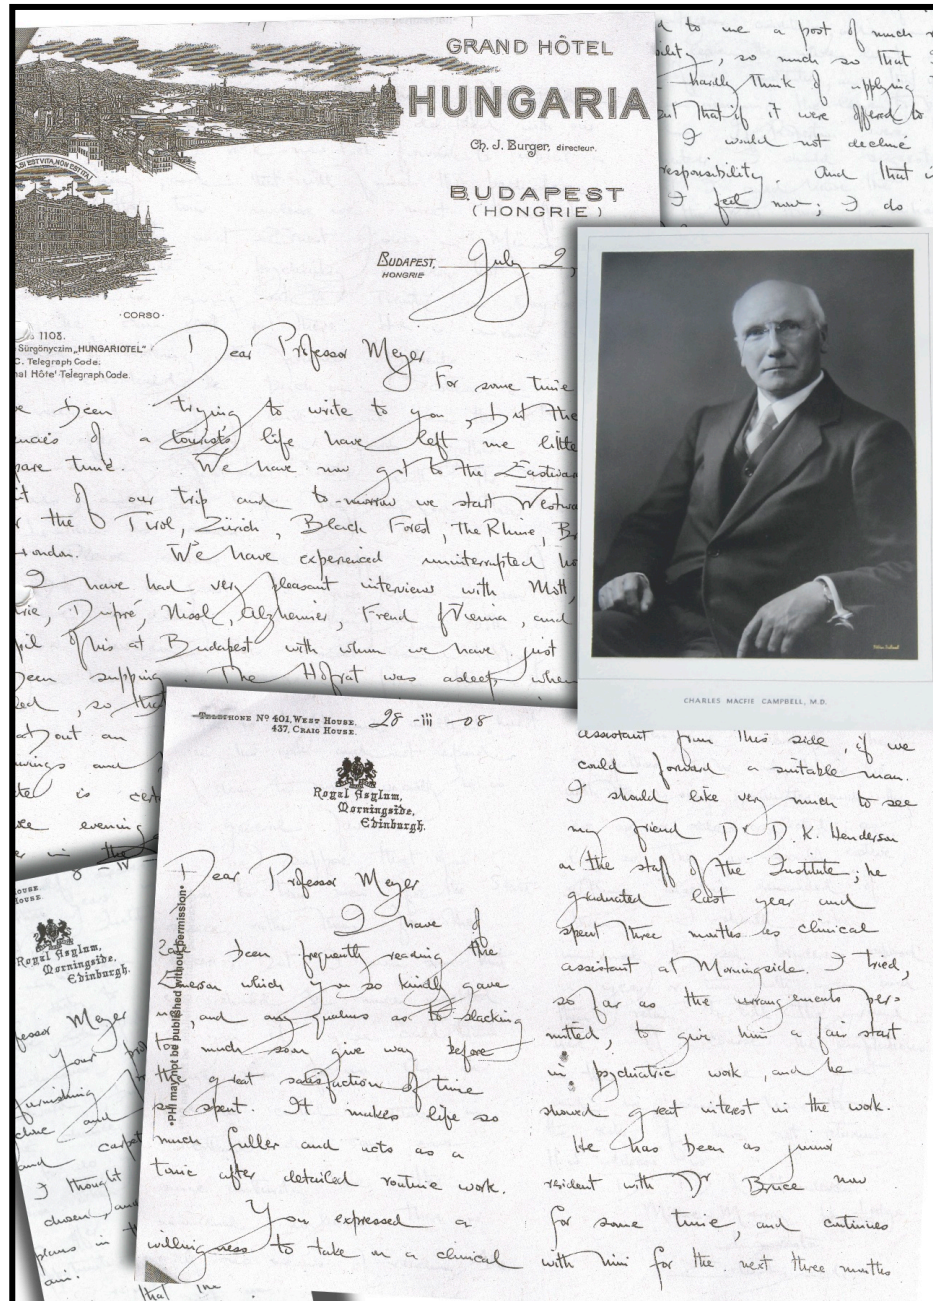 GRAND HÔTEL
HUNGARIA
Ch. J. Burger, directeur.
BUDAPEST
(HONGRIE)
BUDAPEST, July 2,
HONGRIE
SI EST VITA, NON EST ITA
· CORSO ·
1103.
Sürgönyczim „HUNGARIOTEL"
C. Telegraph Code.
al Hôtel Telegraph Code.
Dear Professor Meyer
For some time
been trying to write to you, but the
of a tourist's life have left me little
time. We have now got to the Eastward
of our trip and to-morrow we start Westw
the Tirol, Zürich, Black Forest, The Rhine, B
London. We have experienced uninterrupted
I have had very pleasant interview with Mott,
Dupré, Nissl, Alzheimer, Freud of Vienna, and
of his at Budapest with whom we have just
been supping. The Hofrat was asleep when
so that
out an
and
is
evening
in the
to me a post of much
so much so that
hardly think of applying
but that if it were offered to
I would not decline
responsibility. And that is
I feel now; I do
CHARLES MACFIE CAMPBELL, M.D.
TELEPHONE Nº 401, WEST HOUSE.
437, CRAIG HOUSE.
28 - iii - 08
Royal Asylum,
Morningside,
Edinburgh.
Dear Professor Meyer
I have of
late been frequently reading the
Emerson which you so kindly gave
me, and any qualms as to slacking
too much soon give way before
the great satisfaction of time
so spent. It makes life so
much fuller and acts as a
tonic after detailed routine work.
You expressed a
willingness to take on a clinical
assistant from this side, if we
could forward a suitable man.
I should like very much to see
my friend Dr D. K. Henderson
on the staff of the Institute; he
graduated last year and
spent three months as clinical
assistant at Morningside. I tried,
so far as the arrangements per-
mitted, to give him a fair start
in psychiatric work, and he
showed great interest in the work.
He has been as junior
resident with Dr Bruce now
for some time, and continues
with him for the next three months
•PHI may not be published without permission•
HOUSE
HOUSE.
Royal Asylum,
Morningside,
Edinburgh.
fessor Meyer
Your
furnishing
and
and carpet
I thought
chosen, and
plans in
that the